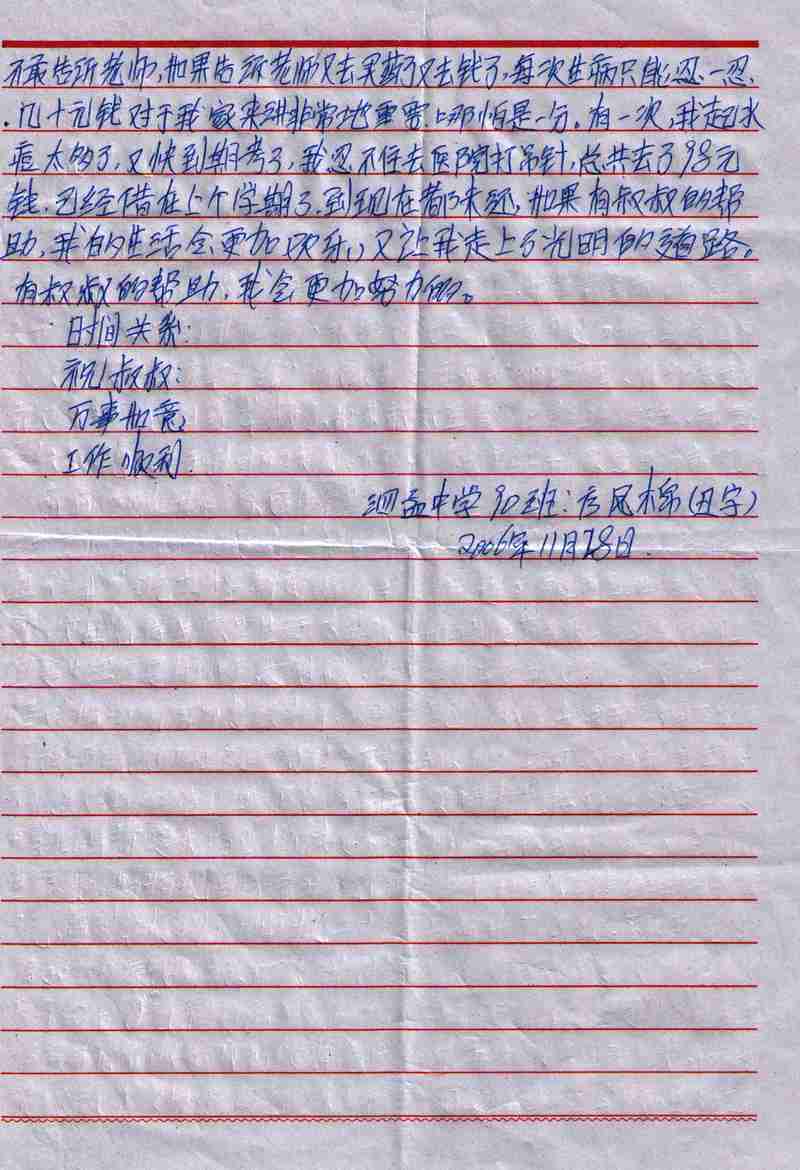 不敢告诉老师,如果告诉老师又去买药了又去钱了,每次生病只能忍一忍.
.几十元钱对于我家来讲非常地重要.哪怕是一分。有一次,我起水
痘太多了,又快到期考了,我忍不住去医院打吊针,总共去了98元
钱.已经借在上个学期了.到现在都未还,如果有叔叔的帮
助,我的生活会更加欢乐,又让我走上了光明的道路。
有叔叔的帮助,我会更加努力的。
时间关系:
祝叔叔:
万事如意,
工作顺利.
中学90班:  凤棉(丑字)
2006年11月28日.